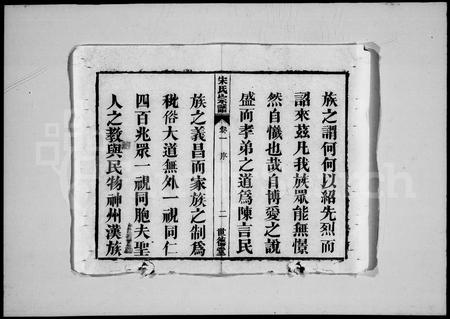 族之謂何何以紹先烈而
詔來茲凡我族眾能無憬
然自懺也哉自博愛之說
盛而孝弟之道為陳言民
朱氏宗譜
卷一 序
二 世德堂
族之義昌而家族之制為
秕俗大道無外一視同仁
四百兆眾一視同胞夫聖
人之教與民物神州漢族